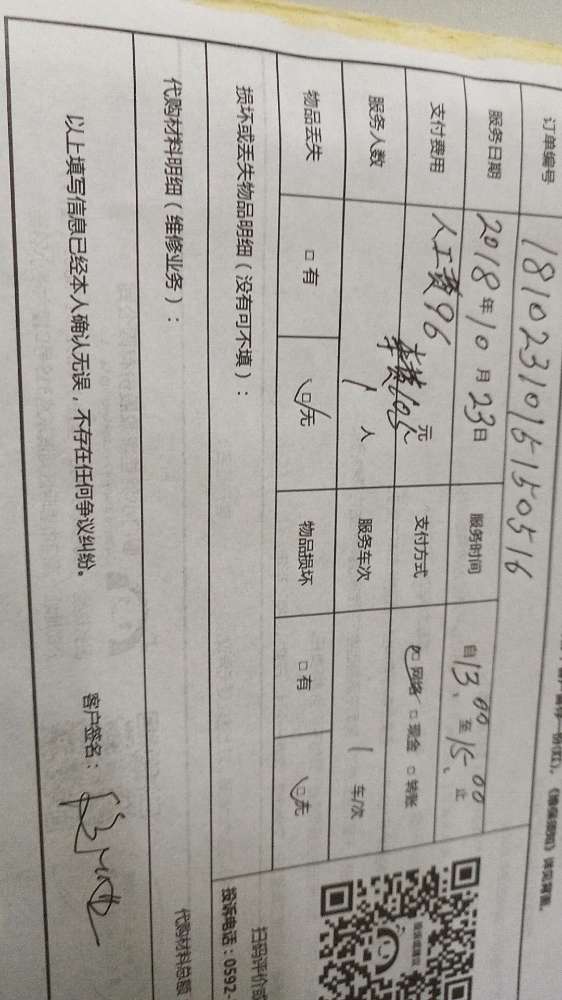 订单编号 181023101515150516
服务日期 2018年10月23日 服务时间 自13.00至15.00止
支付费用 人工费96 元 支付方式 网络 □现金 □转账
车费105
服务人数 1人 服务车次 1车/次
物品丢失 □有 □无 物品损坏 □有 □无
损坏或丢失物品明细（没有可不填）：
扫码评价或
投诉电话：0592-
代购材料明细（维修业务）：
代购材料总额
以上填写信息已经本人确认无误，不存在任何争议纠纷。 客户签名：